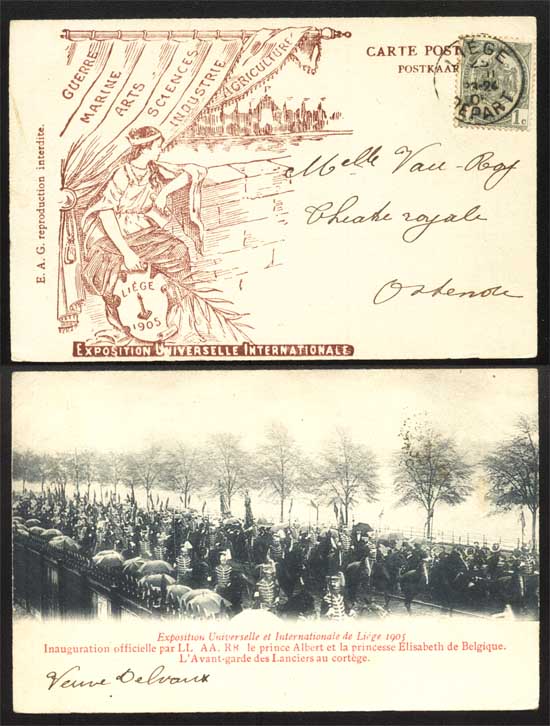 GUERRE
MARINE
ARTS
SCIENCES
INDUSTRIE
AGRICULTURE
CARTE POST
POSTKAAR
LIÈGE
DÉPART
1c
E. A. G. reproduction interdite.
Melle Van-
Theatre royale
Ostende
LIÈGE
1905
EXPOSITION UNIVERSELLE INTERNATIONALE
Exposition Universelle et Internationale de Liége 1905
Inauguration officielle par LL AA. RS le prince Albert et la princesse Élisabeth de Belgique.
L'Avant-garde des Lanciers au cortége.
Veuve Delvaux